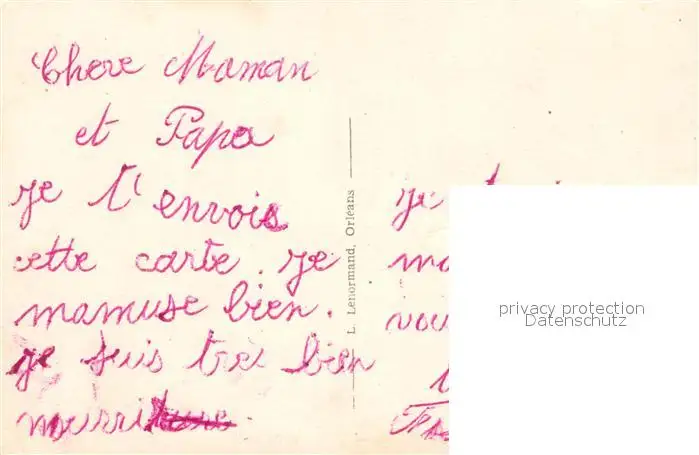 Chere Maman
et Papa
je t'envois
cette carte. je
mamuse bien.
je suis tres bien
nourri
je
vou
L. Lenormand, Orléans
privacy protection
Datenschutz